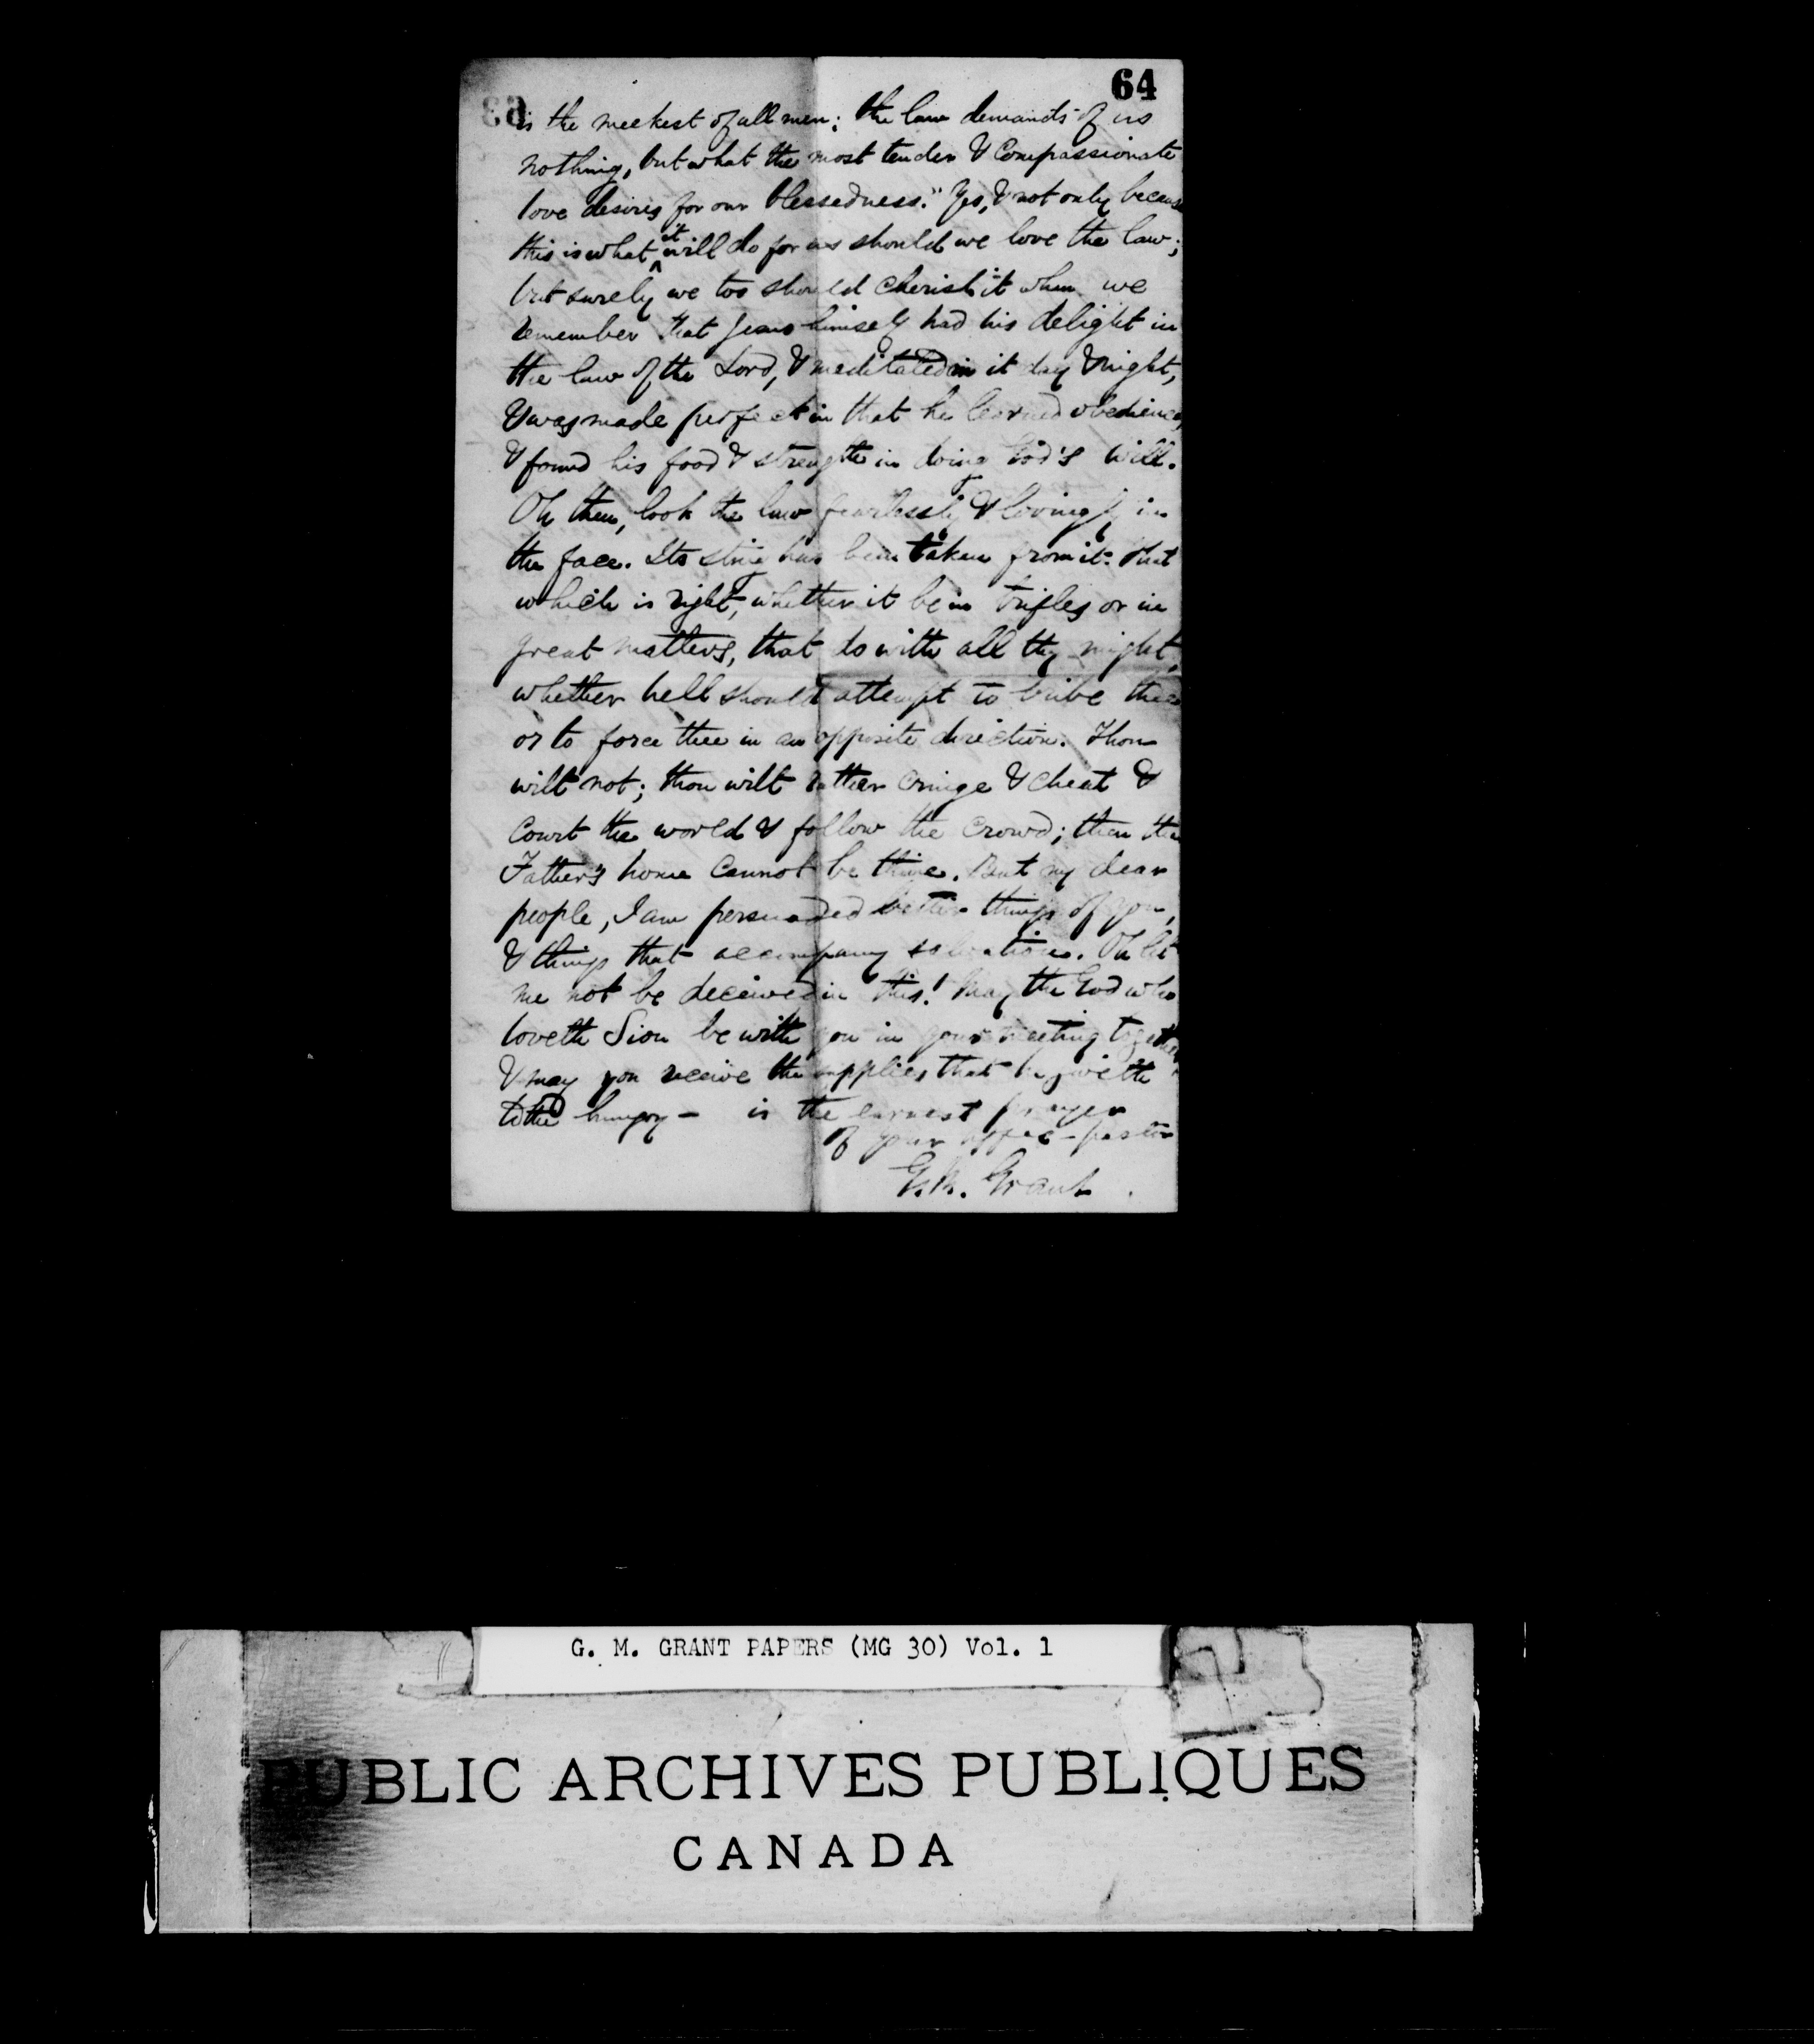 64
is the meekest of all men; the law demands of us
nothing, but what the most tender & Compassionate
love desires for our blessedness." Yes, & not only because
this is what it will do for us should we love the law;
but surely we too should cherish it when we
remember that Jesus himself had his delight in
the law of the Lord, & meditated in it day & night,
& was made perfect in that he learned obedience,
& found his food & strength in doing God's will.
Oh then, look the law fearlessly & lovingly in
the face. Its sting has been taken from it. That
which is right, whether it be in trifles or in
great matters, that do with all thy might,
whether hell should attempt to bribe thee
or to force thee in an opposite direction. Thou
wilt not; thou wilt rather cringe & cheat &
Court the world & follow the Crowd; then the
Father's home Cannot be thine. But my dear
people, I am persuaded better things of you,
& things that accompany salvation. Oh let
me not be deceived in this! May the God who
loveth Sion be with you in your meeting together
& may you receive the supplies that he giveth
to the hungry — is the earnest prayer
of your affec - pastor
G. M. Grant
G. M. GRANT PAPERS (MG 30) Vol. 1
PUBLIC ARCHIVES PUBLIQUES
CANADA